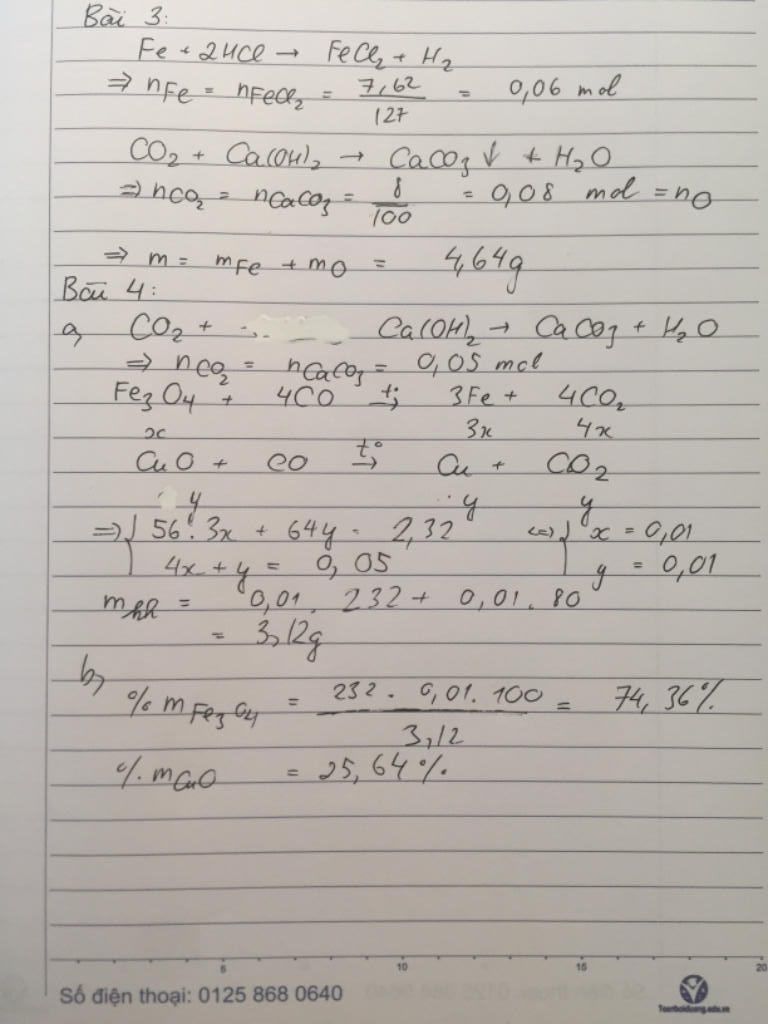 Bài 3:
Fe + 2HCl → FeCl₂ + H₂
⇒ nFe = nFeCl₂ = 7,62/127 = 0,06 mol
CO₂ + Ca(OH)₂ → CaCO₃↓ + H₂O
⇒ nCO₂ = nCaCO₃ = 8/100 = 0,08 mol = nO
⇒ m = mFe + mO = 4,64g
Bài 4:
a, CO₂ + Ca(OH)₂ → CaCO₃ + H₂O
⇒ nCO₂ = nCaCO₃ = 0,05 mol
Fe₃O₄ + 4CO t°→ 3Fe + 4CO₂
x 3x 4x
CuO + CO t°→ Cu + CO₂
y y y
⇒ { 56.3x + 64y = 2,32 ⇔ { x = 0,01
4x + y = 0,05 y = 0,01
mhh = 0,01.232 + 0,01.80
= 3,12g
b, %mFe₃O₄ = 232.0,01.100/3,12 = 74,36%
%mCuO = 25,64%
5 10 15 20
Số điện thoại: 0125 868 0640
Toanboiduong.edu.vn